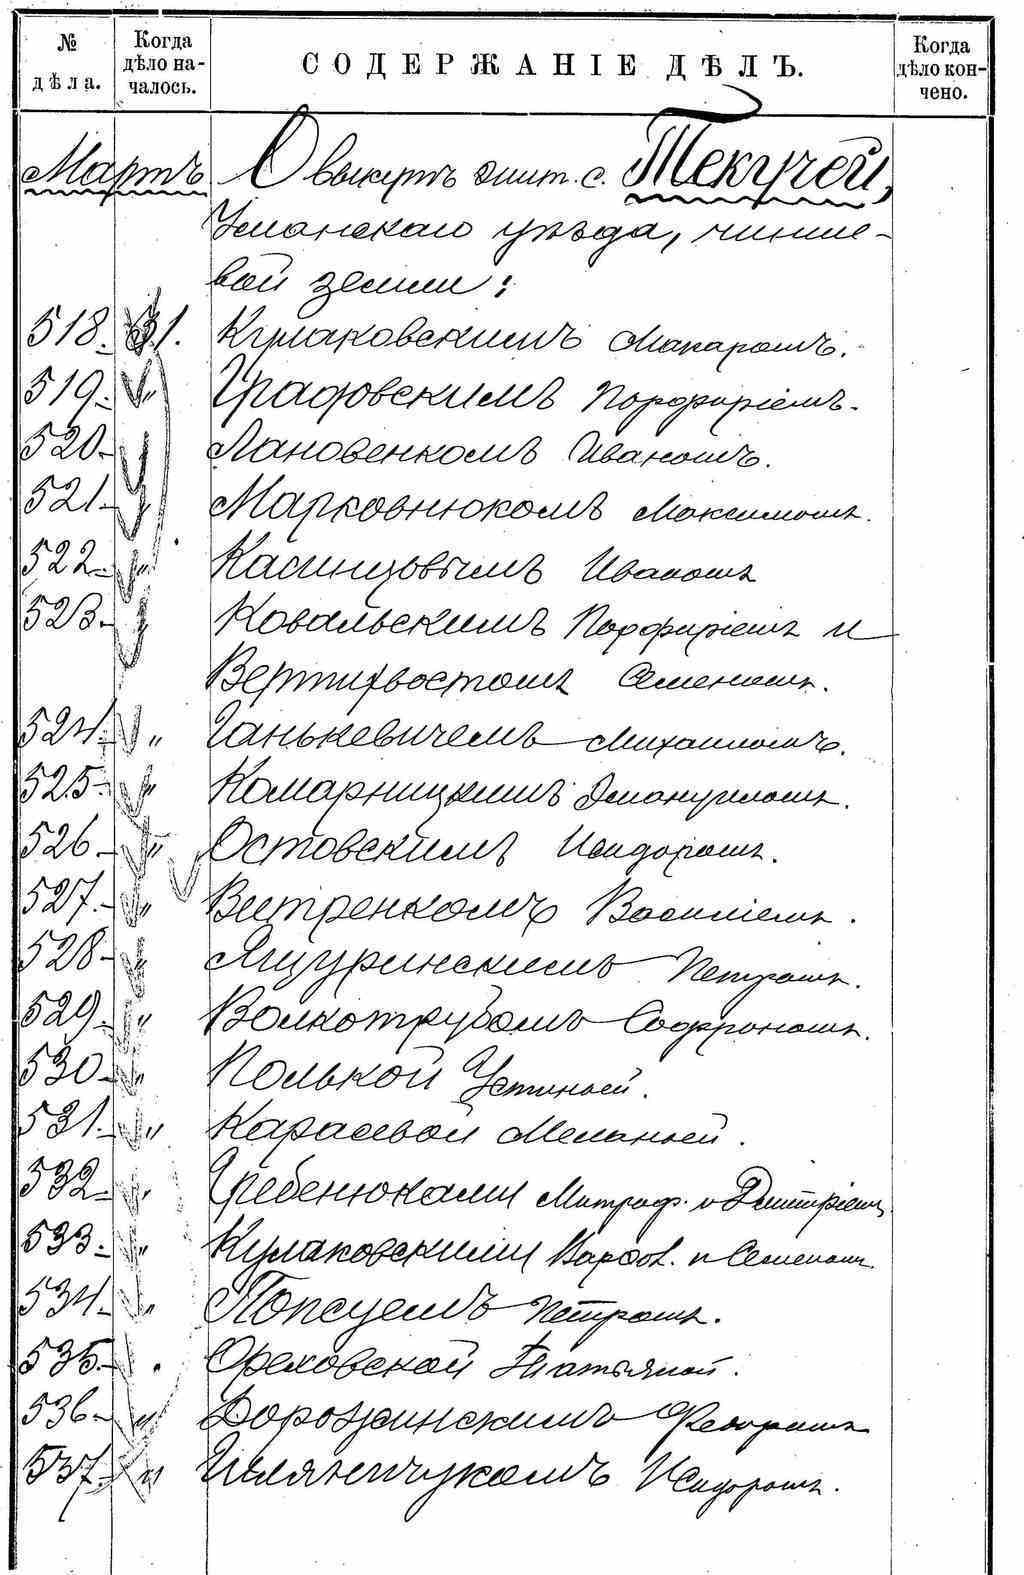 № дѣла. Когда дѣло началось. СОДЕРЖАНІЕ ДѢЛЪ. Когда дѣло кончено.
Мартъ О выкупѣ жит. с. Текучей,
Уманскаго уѣзда, чинше-
вой земли:
518. 31. Кулаковскимъ Макаромъ.
519. " Графовскимъ Порфиріемъ.
520. " Лановенкомъ Иваномъ.
521. " Марковнюкомъ Максимомъ.
522. " Иваномъ
523. " Ковальскимъ Порфиріемъ и
Вертихвостомъ Семеномъ.
524. " Ганькевичемъ Михаиломъ.
525. " Комарницкимъ Эмануиломъ.
526. " Остовскимъ Исидоромъ.
527. " Витренкомъ Василіемъ.
528. " Ящуринскимъ Петромъ.
529. " Волкотрубомъ Софрономъ.
530. " Полькой Устиньей.
531. " Карасевой Меланьей.
532. " Гребенюками Митроф. и Дмитріемъ
533. " Кулаковскими Варфол. и Семеномъ.
534. " Попсуемъ Петромъ.
535. " Ореховской Татьяной.
536. " Дорожинскимъ Федоромъ
537. " Исидоромъ.